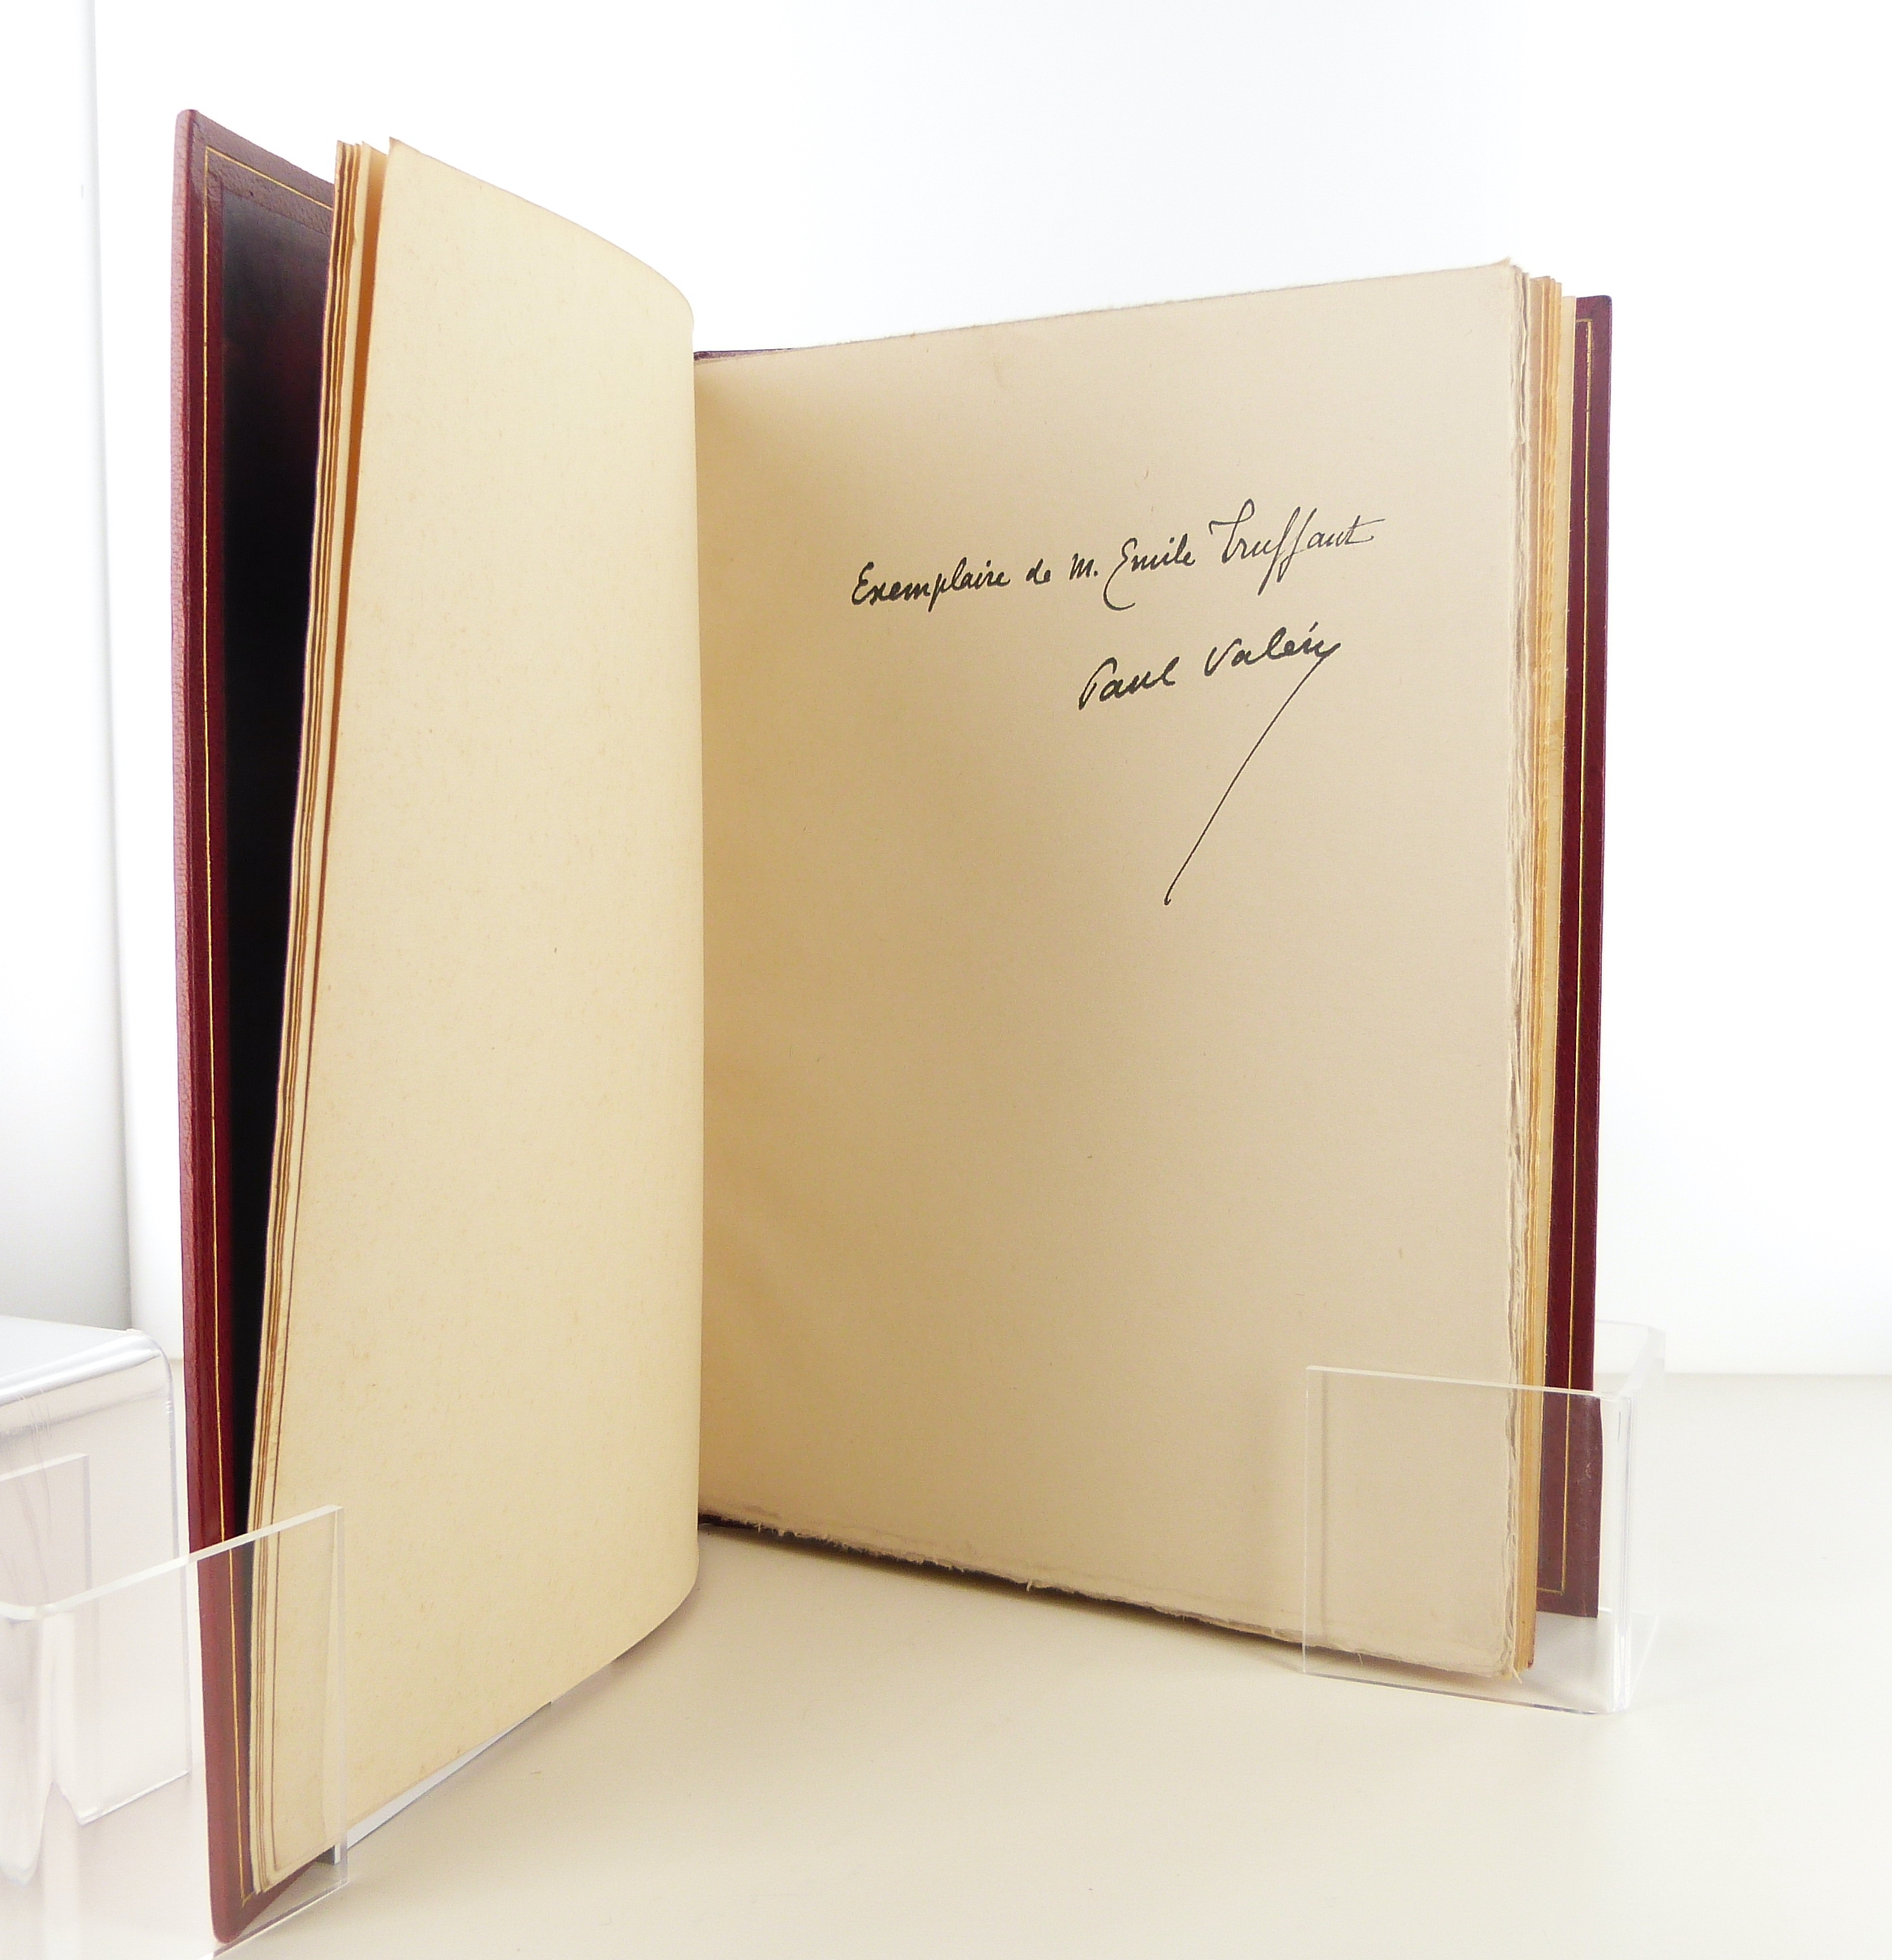 Exemplaire de M. Emile Truffaut
Paul Valéry